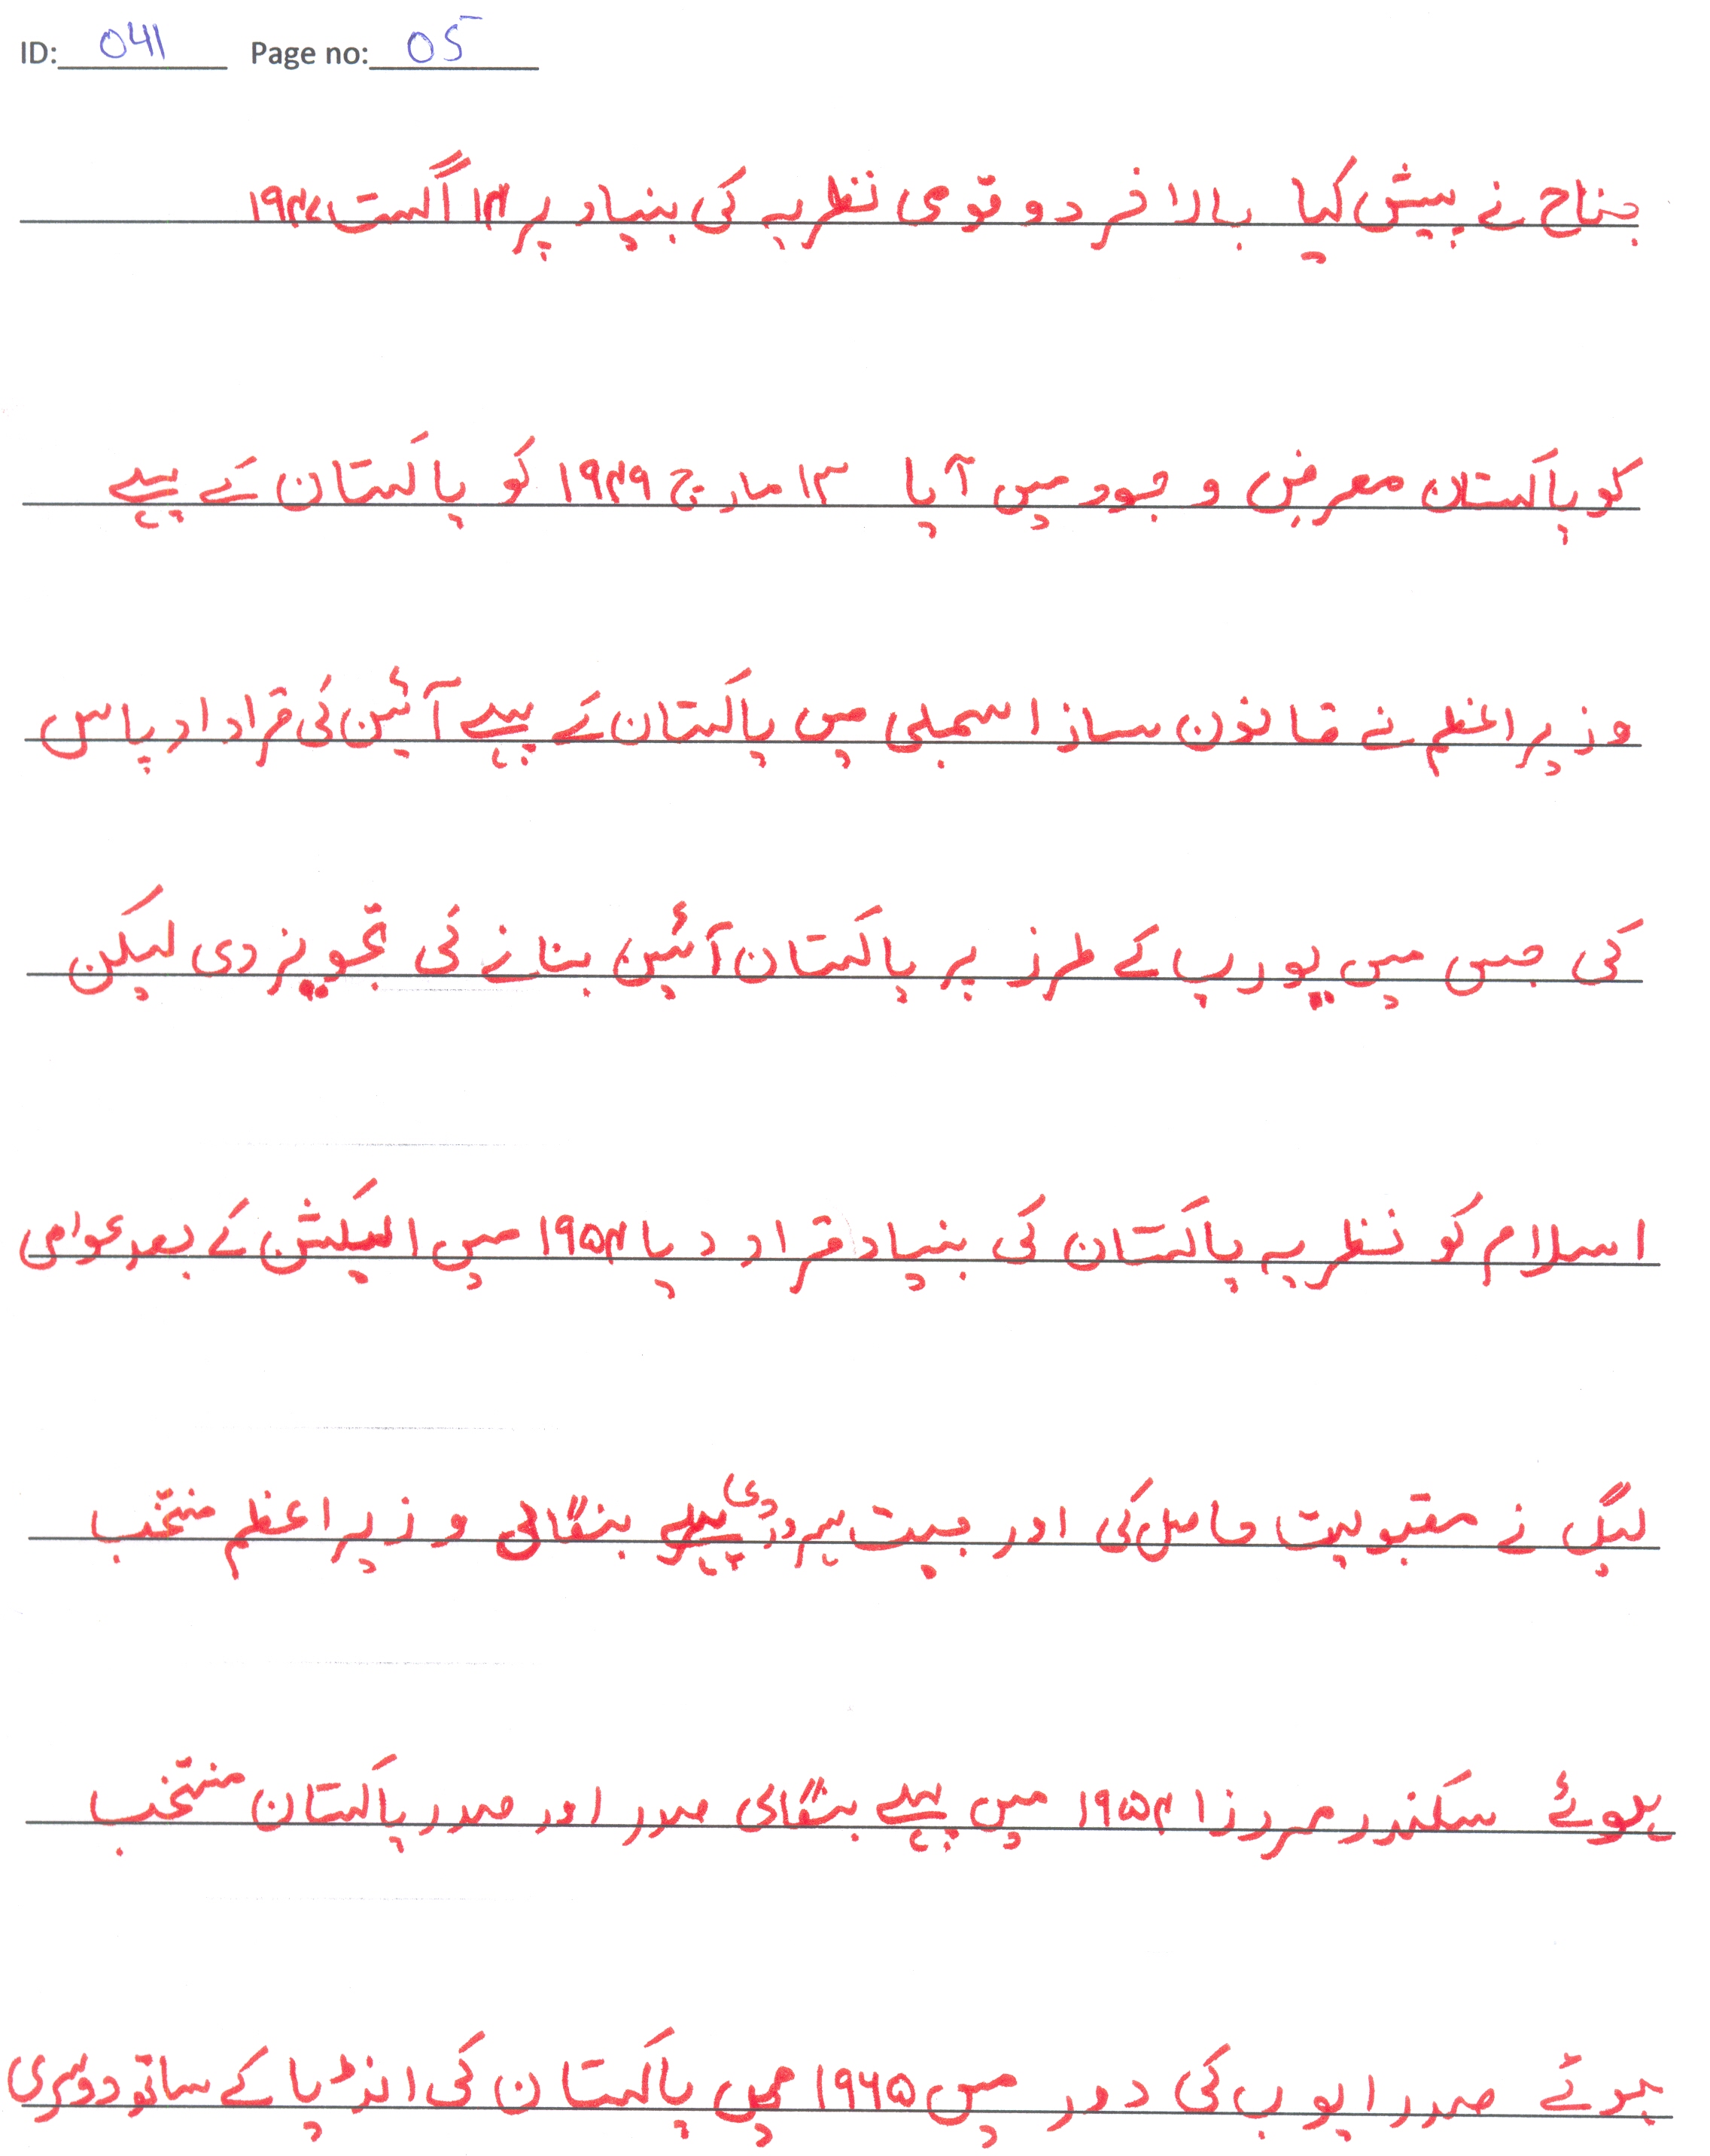 ID: 041 Page no: 05
جناح نے پیش کیا بالاخر دو قومی نظریہ کی بنیاد پر ۱۴ اگست ۱۹۴۷
کو پاکستان معرض وجود میں آیا ۱۳ مارچ ۱۹۴۹ کو پاکستان کے پہلے
وزیراعظم نے قانون ساز اسمبلی میں پاکستان کے پہلے آئین کی قرادار پاس
کی جس میں یورپ کے طرز پر پاکستان آئین بنانے کی تجویز دی لیکن
اسلام کو نظریہ پاکستان کی بنیاد قرار دیا ۱۹۵۴ میں الیکشن کے بعد عوامی
لیگ نے مقبولیت حاصل کی اور حسیت سہروردی پہلے بنگالی وزیراعظم منتخب
ہوئے سکندر مرزا ۱۹۵۴ میں پہلے بنگالی صدر اور صدر پاکستان منتخب
ہوئے صدر ایوب کی دور میں ۱۹۶۵ میں پاکستان کی انڈیا کے ساتھ دوسری